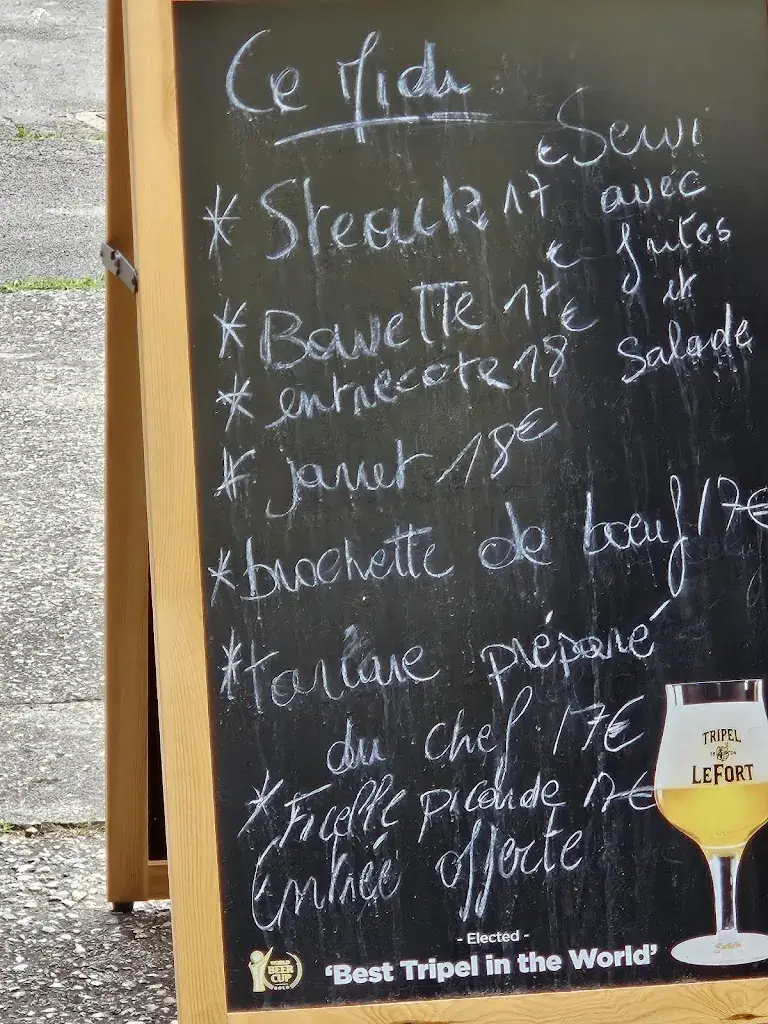 Ce Midi
Servi
* Steack 17 € avec
frites
* Bavette 17 € et
* entrecote 18 € Salade
* jarret 18€
* brochette de bœuf 17€
* tartare préparé
du chef 17€
* Ficelle picarde 17€
Entrée offerte
TRIPEL
LEFORT
- Elected -
WORLD
BEER
CUP
GOLD
'Best Tripel in the World'